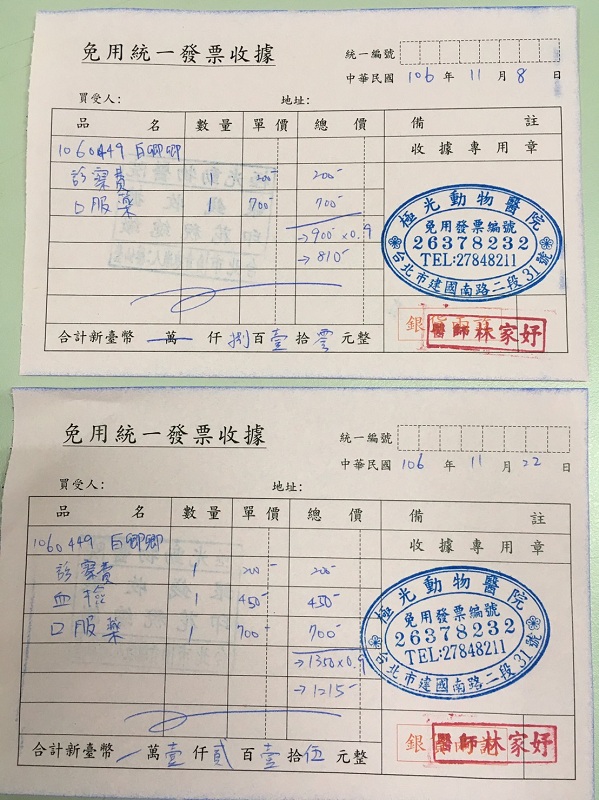 免用統一發票收據
統一編號
中華民國 106 年 11 月 8 日
買受人: 地址:
品名 數量 單價 總價 備註
1060449 白卿卿 收據專用章
診察費 1 200 200
口服藥 1 700 700
→900×0.9
→810
極光動物醫院
免用發票編號
26378232
TEL:27848211
台北市建國南路二段31號
醫師林家妤
合計新臺幣 萬 仟 捌 百 壹 拾 零 元整
免用統一發票收據
統一編號
中華民國 106 年 11 月 22 日
買受人: 地址:
品名 數量 單價 總價 備註
1060449 白卿卿 收據專用章
診察費 1 200 200
血檢 1 450 450
口服藥 1 700 700
→1350×0.9
→1215
極光動物醫院
免用發票編號
26378232
TEL:27848211
台北市建國南路二段31號
醫師林家妤
合計新臺幣 萬 壹 仟 貳 百 壹 拾 伍 元整